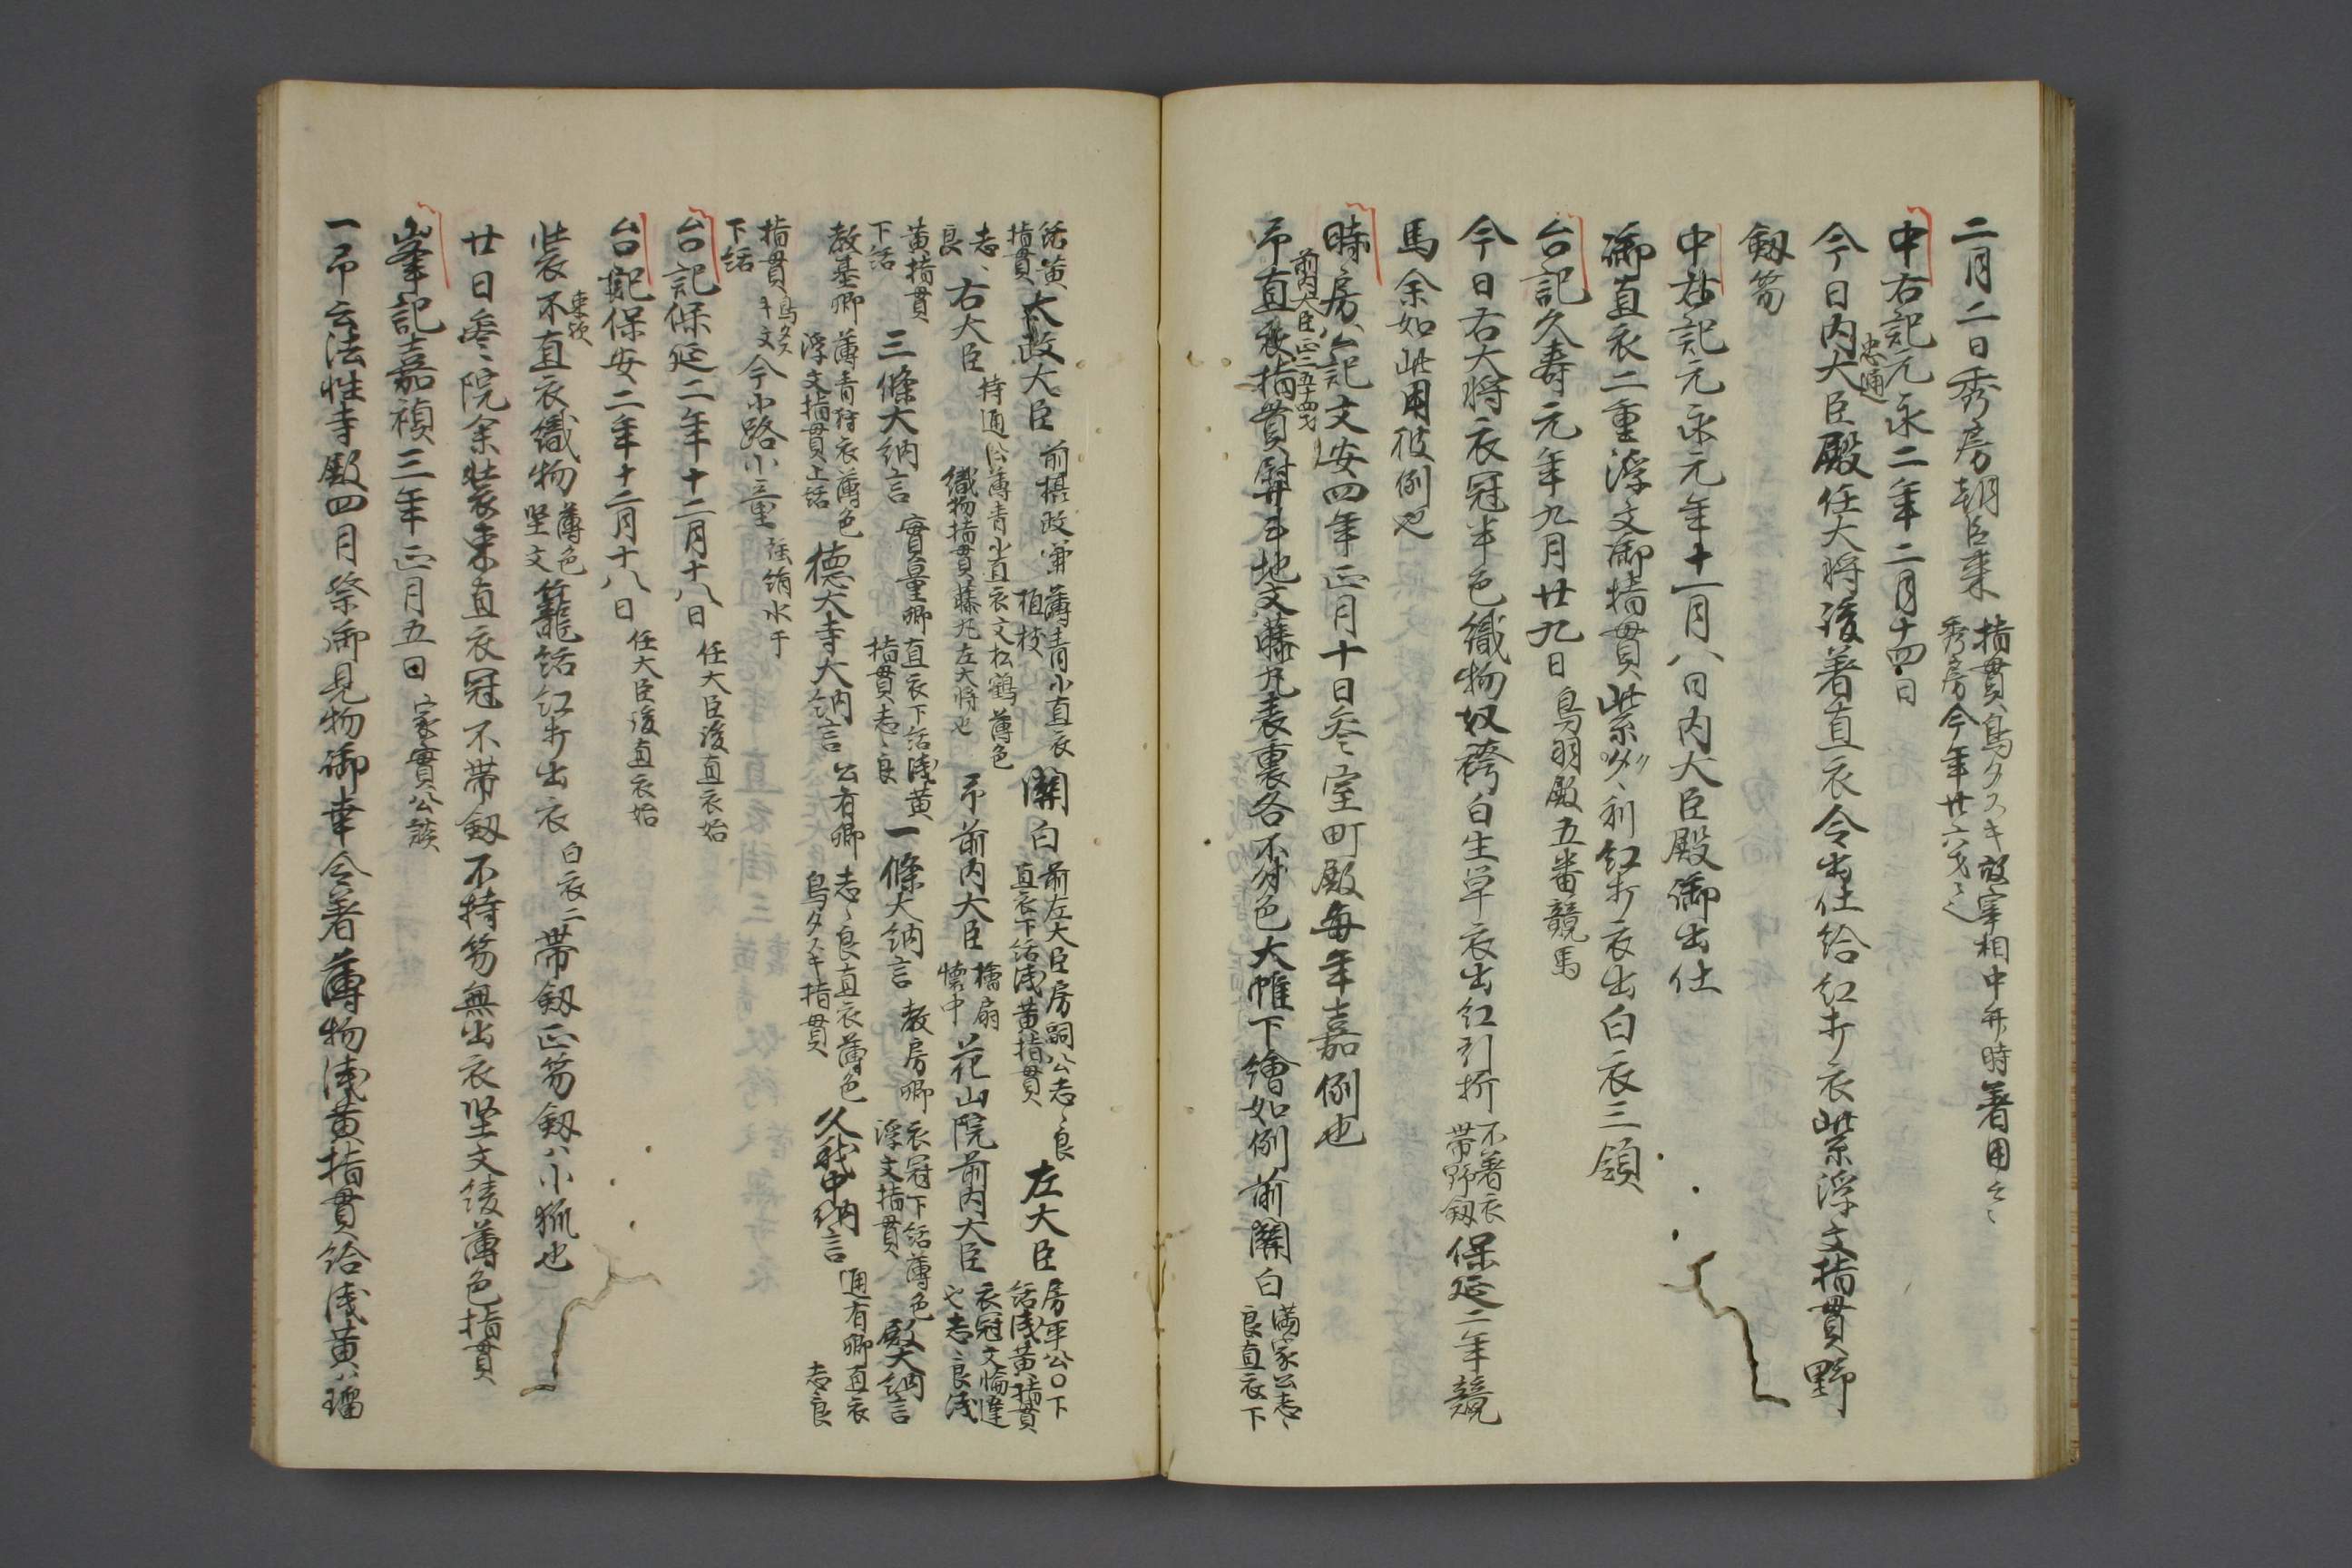 二月二日秀房朝臣来
指貫鳥タスキ故宰相中弁時著用云々
秀房今年廿六才云々
中右記元永二年二月十四日
今日内大臣殿任大将後著直衣令出仕給紅打衣紫浮文指貫野
忠通
劔笏
中右記元永元年十一月八日内大臣殿御出仕
御直衣二重浮文御指貫紫 紅打衣出白衣三領
台記久寿元年九月廿九日
鳥羽殿五番競馬
今日右大将衣冠半色織物奴袴白生単衣出紅引折
不著衣
帯野劔
保延二年競
馬余如此用彼例也
時房公記文安四年正月十日参室町殿毎年嘉例也
前内大臣正二五十四才
予直衣指貫 地文藤丸表裏各不付色大帷下繪如例前關白
満家公志々
良直衣下
結黄
指貫
太政大臣
前摂政
薄青小直衣
植枝
關白
前左大臣房嗣公志々良
直衣下結浅黄指貫
左大臣
房平公〇下
結浅黄指貫
志々
良
右大臣
持通公薄青小直衣文松鶴薄色
織物指貫藤丸左大将也
予前内大臣
檜扇
懐中
花山院前内大臣
衣冠文
也志々良浅
黄指貫
下結
三條大納言
實量卿
直衣下結浅黄
指貫志々良
一條大納言
教房卿
衣冠下結薄色
浮文指貫
殿大納言
教基卿
薄青狩衣薄色
浮文指貫上結
徳大寺大納言
公有卿
志々良直衣薄色
鳥タスキ指貫
久我中納言
通有卿直衣
志々良
指貫鳥タス
キ文
下結
今小路
台記保延二年十二月十八日
任大臣後直衣始
台記保安二年十二月十八日
任大臣後直衣始
装不直衣織物
束歟
薄色
堅文
籠結紅打出衣
白衣二
帯劔正笏劔ハ小狐也
廿日参院余装束直衣冠不帯劔不持笏無出衣堅文綾薄色指貫
峯記嘉禎三年正月五日
家實公談
一予云法性寺殿四月祭御見物御幸令著薄物浅黄指貫給浅黄ハ瑠